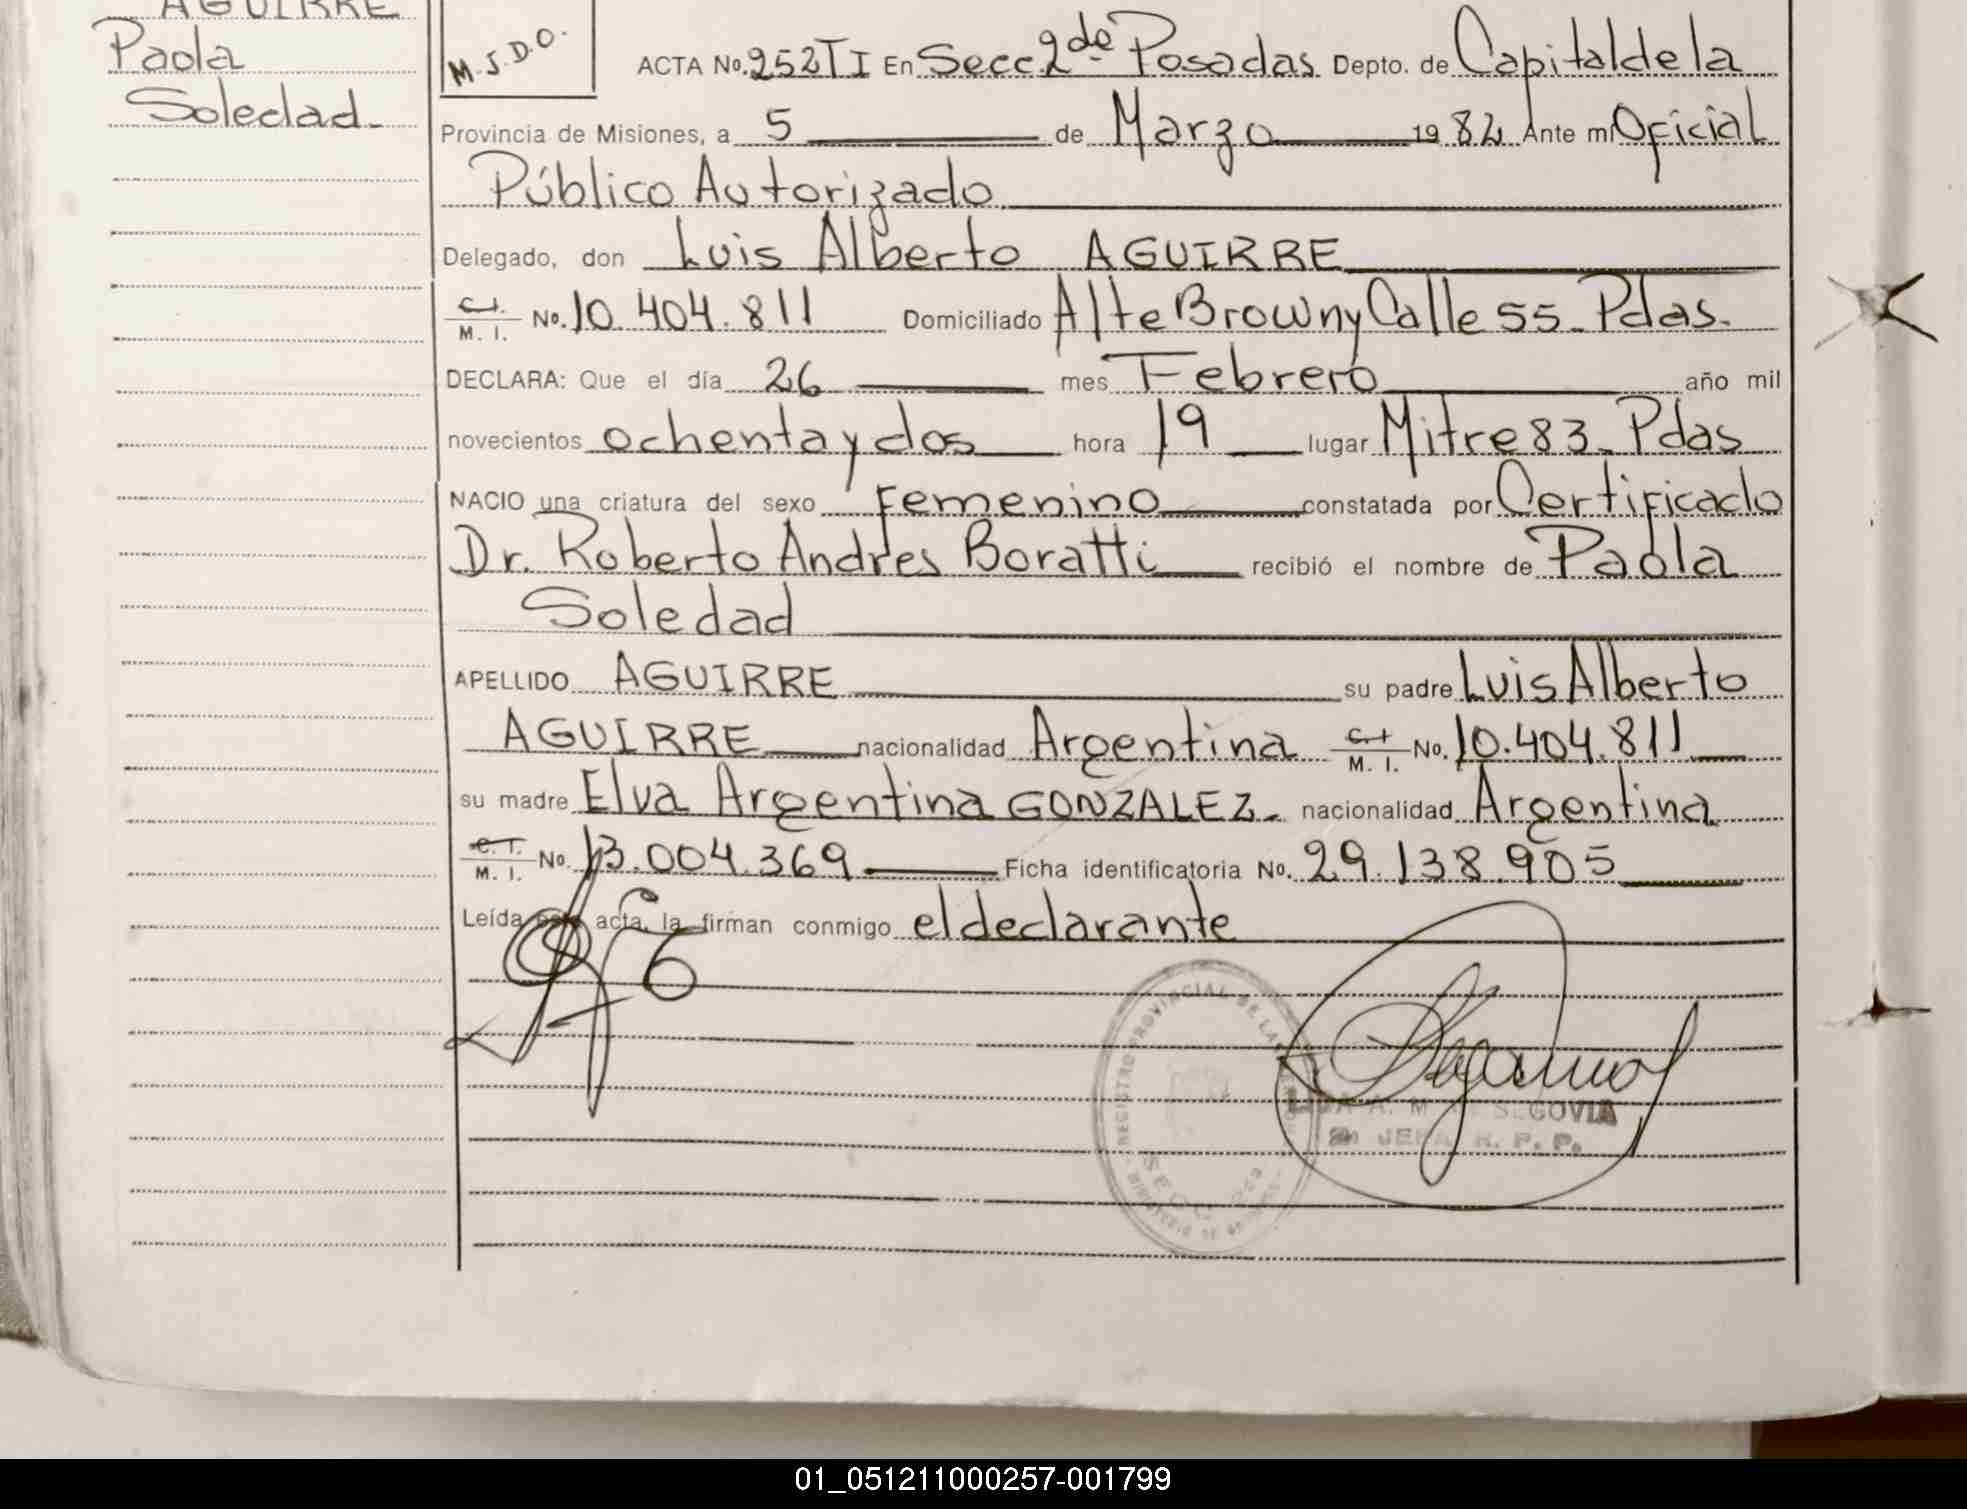 AGUIRRE
Paola
Soledad-
M.S.D.O.
ACTA No. 252TI En Secc 2da de Posadas Depto. de Capital de la
Provincia de Misiones, a 5 de Marzo 1982 Ante mí Oficial
Público Autorizado
Delegado, don Luis Alberto AGUIRRE
C.I.
M. I. No. 10.404.811 Domiciliado Alte Brown y Calle 55- Pdas.
DECLARA: Que el día 26 mes Febrero año mil
novecientos ochenta y dos hora 19 lugar Mitre 83- Pdas
NACIO una criatura del sexo Femenino constatada por Certificado
Dr. Roberto Andres Boratti recibió el nombre de Paola
Soledad
APELLIDO AGUIRRE su padre Luis Alberto
AGUIRRE nacionalidad Argentina C.I.
M. I. No. 10.404.811
su madre Elva Argentina GONZALEZ- nacionalidad Argentina
C.I.
M. I. No. 13.004.369 Ficha identificatoria No. 29.138.905
Leída esta acta, la firman conmigo el declarante
REGISTRO PROVINCIAL DE LAS
SECC.
SEGOVIA
JEFA R. P. P.
01_051211000257-001799